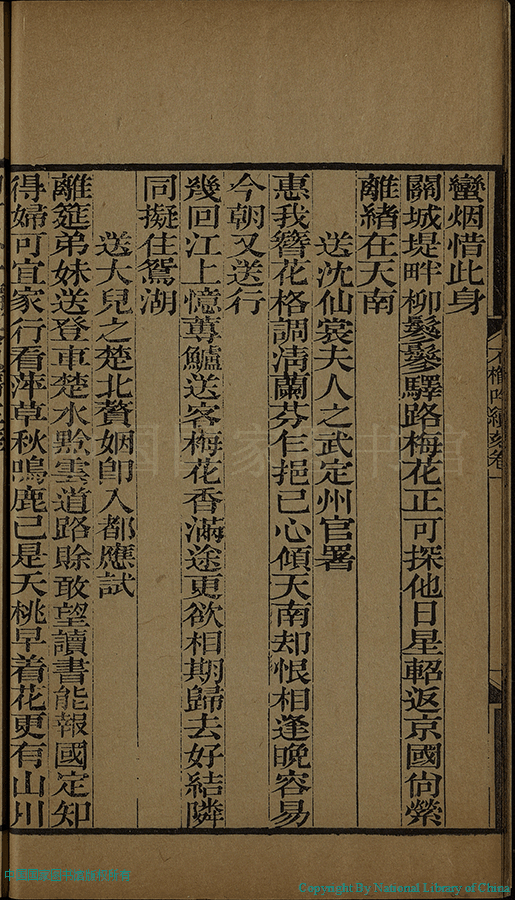 蠻烟惜此身
關城堤畔柳鬖鬖驛路梅花正可探他日星軺返京國尙縈
離緒在天南
送沈仙裳夫人之武定州官署
惠我簪花格調淸蘭芬乍挹已心傾天南却恨相逢晚容易
今朝又送行
幾回江上憶蓴鱸送客梅花香滿途更欲相期歸去好結隣
同擬住鴛湖
送大兒之楚北贅姻卽入都應試
離筵弟妹送登車楚水黔雲道路賒敢望讀書能報國定知
得婦可宜家行看萍草秋鳴鹿已是夭桃早着花更有山川
Copyright By National Library of China